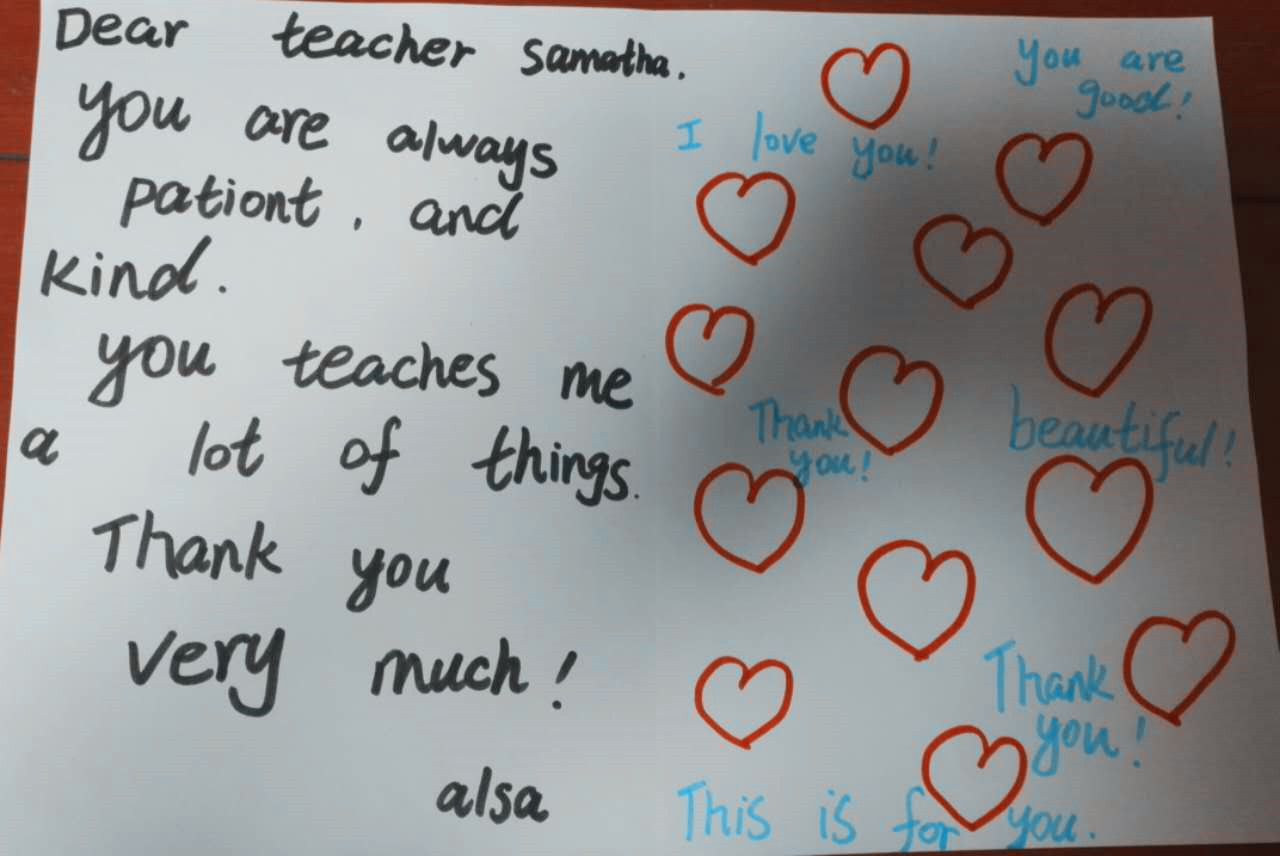 Dear teacher Samatha.
you are always
pationt, and
kind.
you teaches me
a lot of things.
Thank you
very much!
alsa
You are
good!
I love you!
Thank
you!
beautiful!
Thank
you!
This is for you.